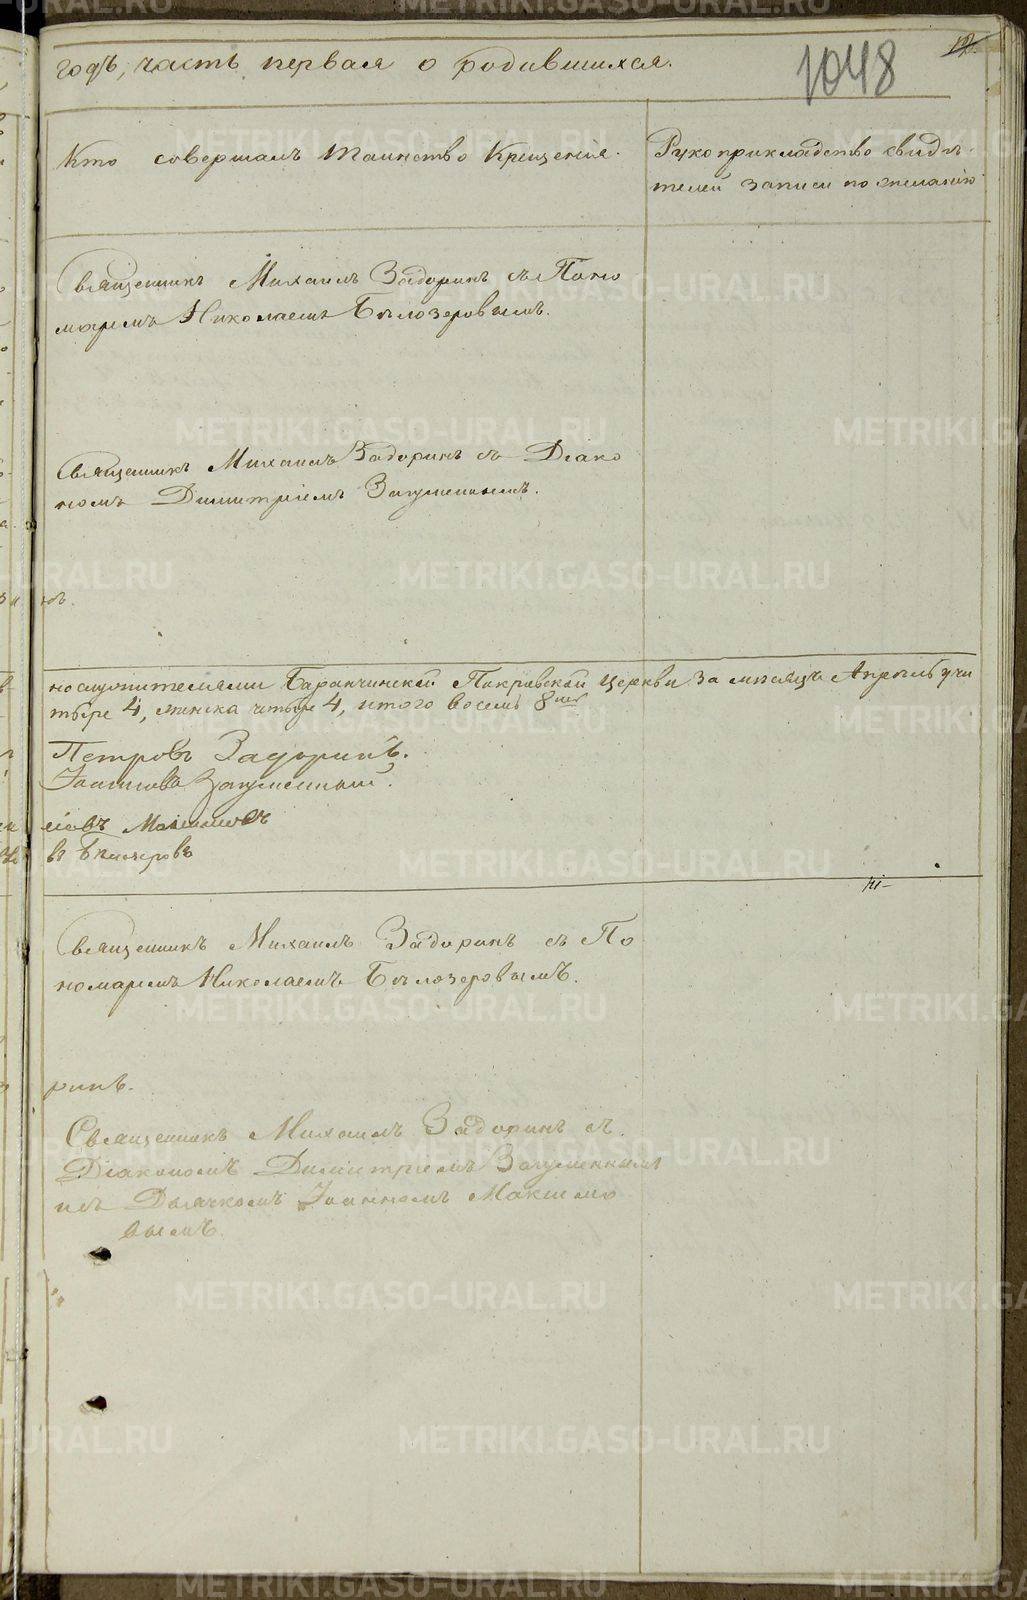 годъ, часть первая о родившихся.
1048
Кто совершалъ таинство Крещенія.
Рукоприкладство свидѣ-
телей записи по желанію
Священникъ Михаилъ Задоринъ съ Поно
маремъ Николаемъ Бѣлозеровымъ.
Священникъ Михаилъ Задоринъ съ Діако
номъ Димитріемъ Загуменнымъ.
нослужителями Баранчинской Покровской церкви за мѣсяцъ Апрѣль учи
тыре 4, женска четыре 4, итого восемь 8
Петровъ Задоринъ.
Іоанновъ Загуменный.
въ Бѣлозеровъ
Священникъ Михаилъ Задоринъ съ По
номаремъ Николаемъ Бѣлозеровымъ.
ринъ.
Священникъ Михаилъ Задоринъ съ
Діакономъ Димитріемъ Загуменнымъ
и съ Дьячкомъ Іоанномъ Максимо
вымъ.
METRIKI.GASO-URAL.RU